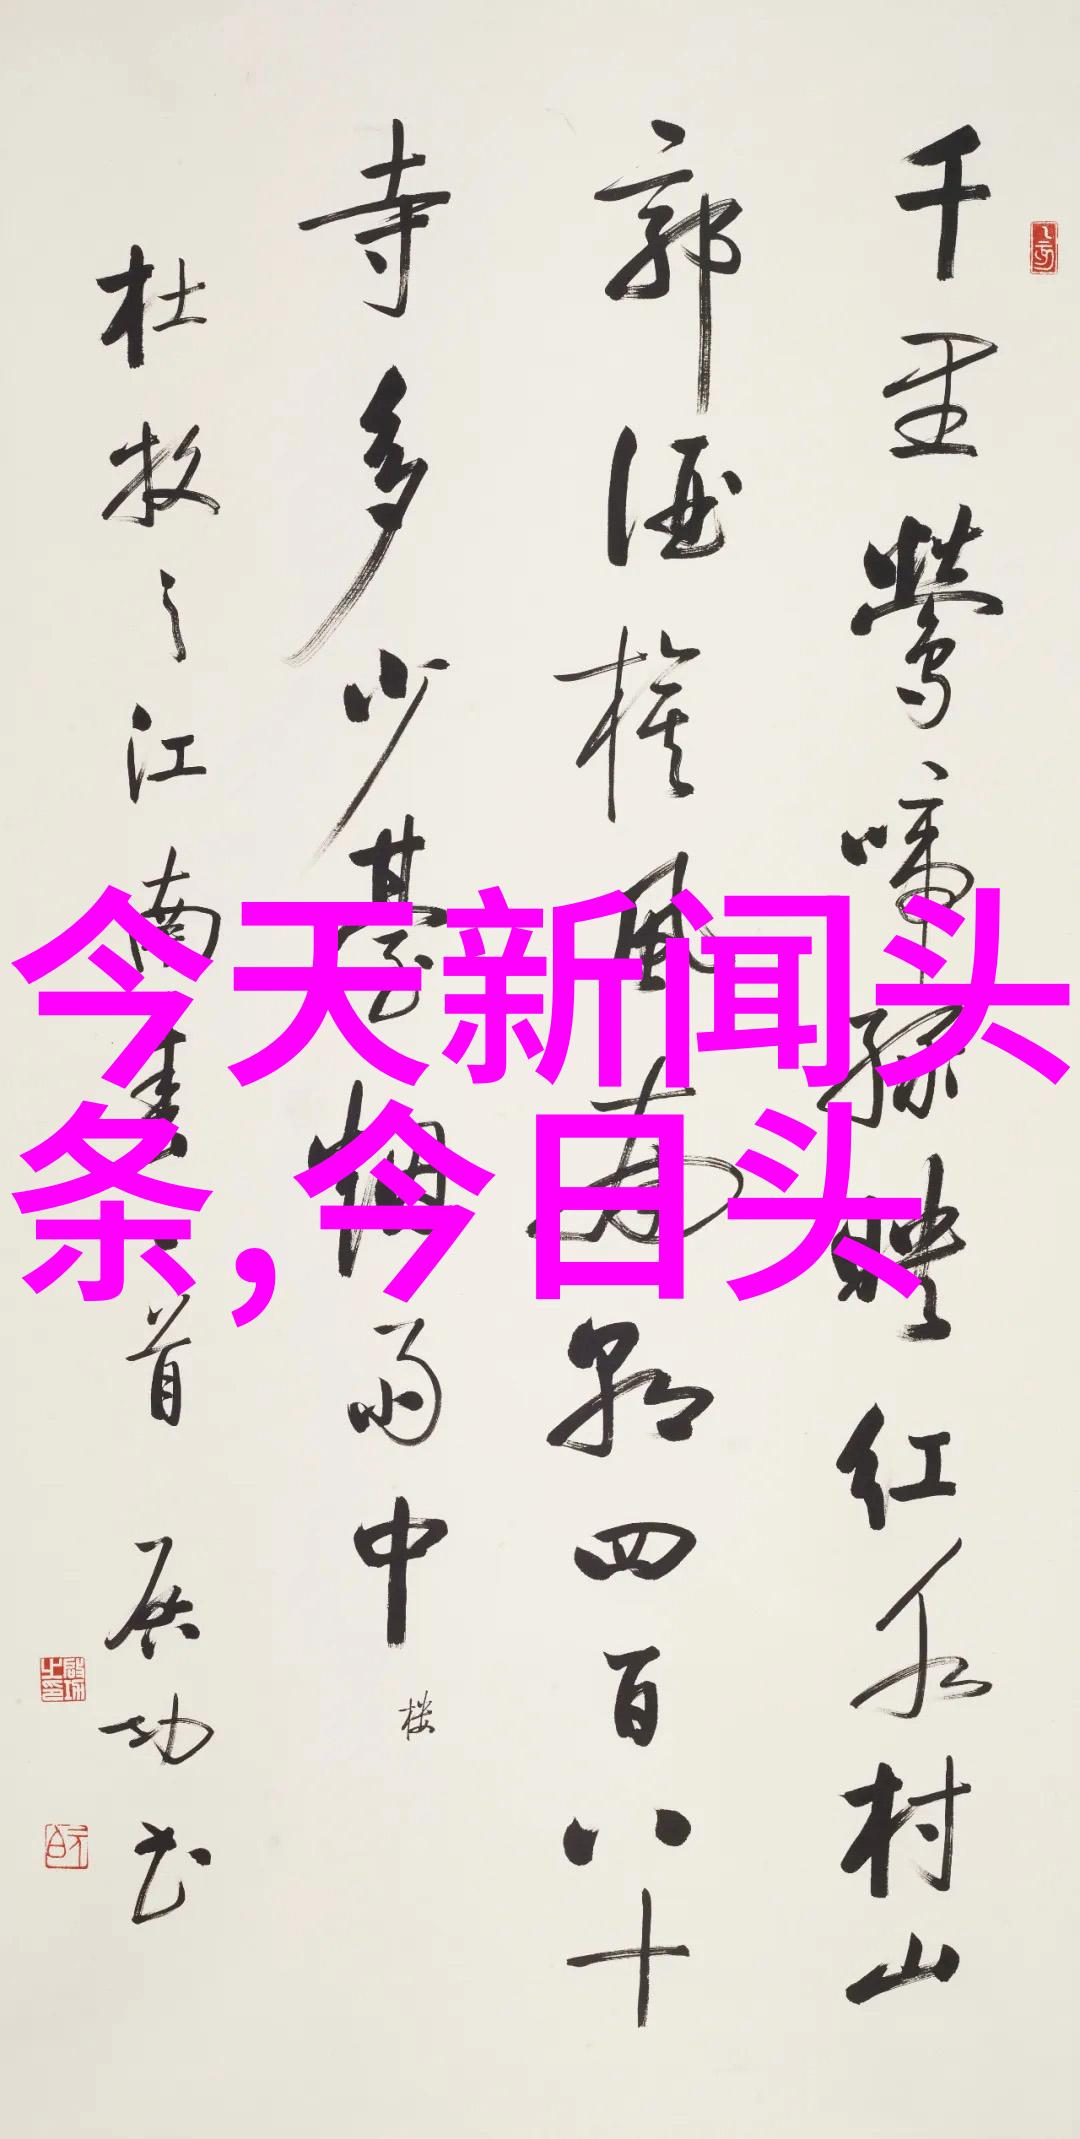 千里鶯啼綠映紅水村山
郭酒旗風南朝四百八十
寺多少臺烟雨中
楼
杜牧之江南春一首 启功书
今天新闻头
条,今日头